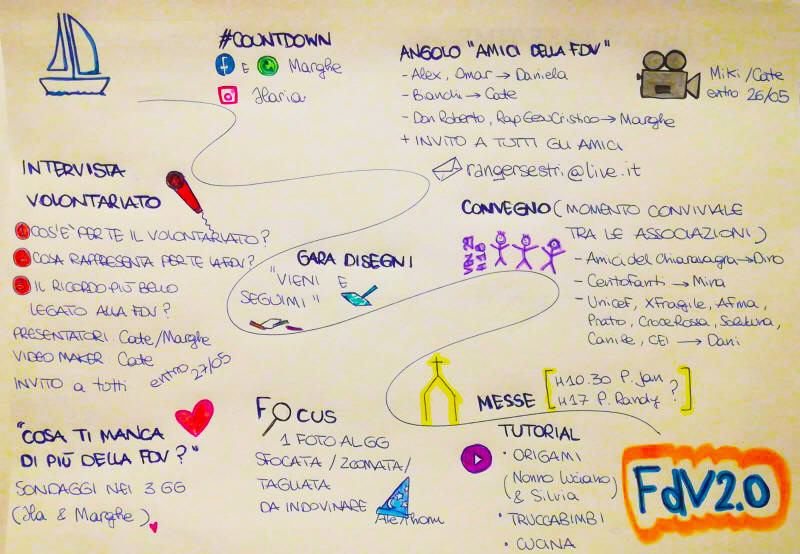 #COUNTDOWN
E Marghe
Ilaria
ANGOLO "AMICI DELLA FDV"
- Alex, Omar → Daniela
- Bianchi → Cate
- Don Roberto, Rap Gesù Cristico → Marghe
+ INVITO A TUTTI GLI AMICI
rangersestri@live.it
Miki/Cate
entro 26/05
INTERVISTA
VOLONTARIATO
1 COS'E' PER TE IL VOLONTARIATO?
2 COSA RAPPRESENTA PER TE LA FDV?
3 IL RICORDO PIÙ BELLO
LEGATO ALLA FDV?
PRESENTATORI Cate/Marghe
VIDEO MAKER Cate
INVITO a tutti
entro 27/05
GARA DISEGNI
"VIENI E
SEGUIMI"
CONVEGNO (MOMENTO CONVIVIALE
TRA LE ASSOCIAZIONI)
VEN 29
H18
- Amici del Chiaravagna → Dino
- Centofanti → Mira
- Unicef, XFragile, Afma,
Prato, Croce Rossa,
CEI → Dani
MESSE [H10.30 P. Jan
H17 P. Randy ?]
"COSA TI MANCA
DI PIÙ DELLA FDV?"
SONDAGGI NEI 3 GG
(Ila & Marghe)
FOCUS
1 FOTO AL GG
SFOCATA / ZOOMATA /
TAGLIATA
DA INDOVINARE
Ale/Thom
TUTORIAL
• ORIGAMI
(Nonno Luciano)
& Silvia
• TRUCCABIMBI
• CUCINA
FdV2.0